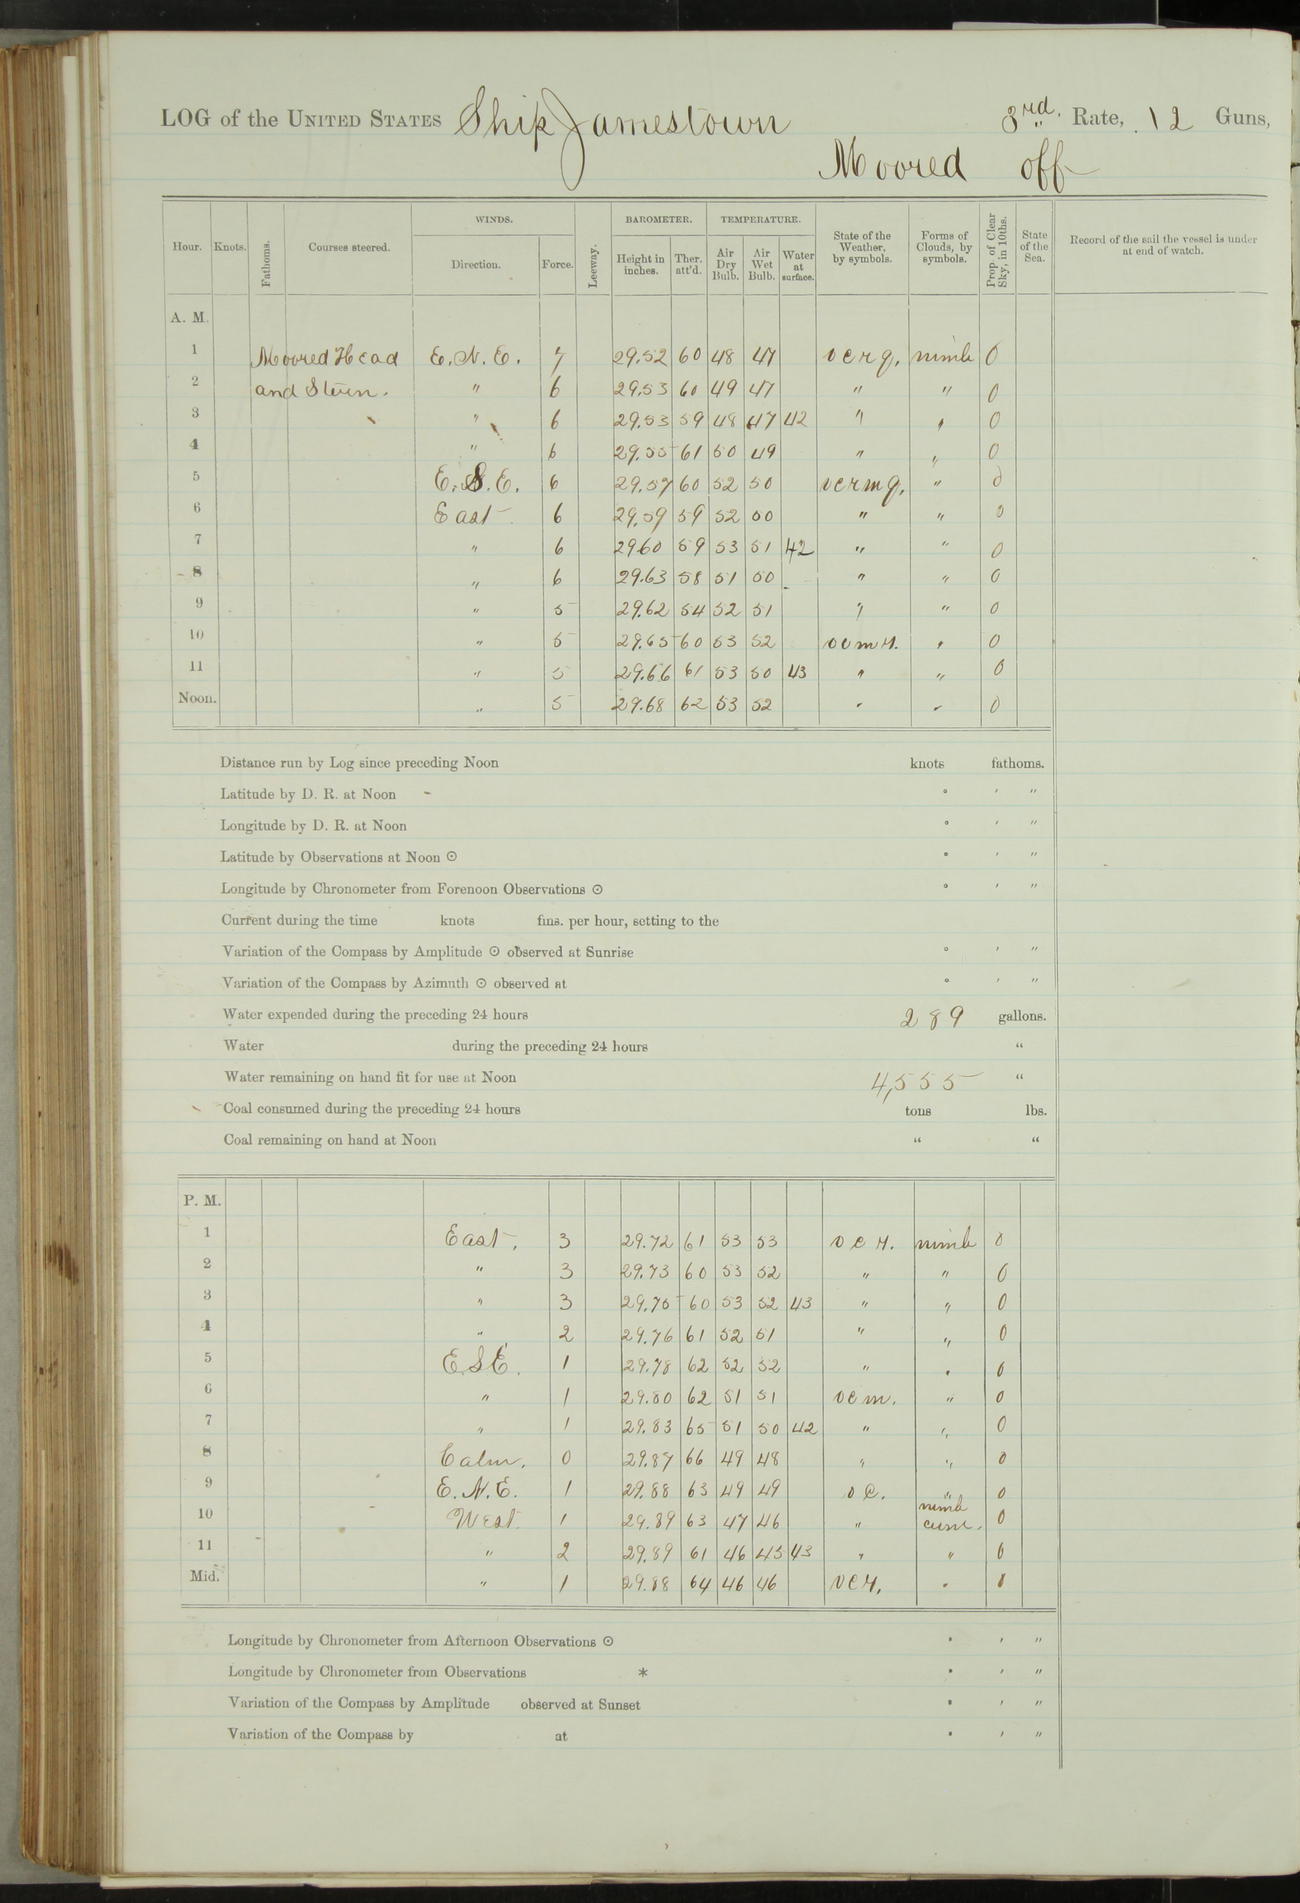 LOG of the UNITED STATES Ship Jamestown 3rd. Rate, 12 Guns,
Moored off
Hour. Knots. Fathoms. Courses steered. WINDS. Direction. Force. Leeway. BAROMETER. Height in inches. Ther. att'd. TEMPERATURE. Air Dry Bulb. Air Wet Bulb. Water at surface. State of the Weather, by symbols. Forms of Clouds, by symbols. Prop. of Clear Sky, in 10ths. State of the Sea. Record of the sail the vessel is under at end of watch.
A. M.
1 Moored Head E. N. E. 7 29.52 60 48 47 ocrq. nimb 0
2 and Stern. " 6 29.53 60 49 47 " " 0
3 " 6 29.53 59 48 47 42 " " 0
4 " 6 29.55 61 50 49 " " 0
5 E. S. E. 6 29.57 60 52 50 ocrmq. " 0
6 East 6 29.59 59 52 50 " " 0
7 " 6 29.60 59 53 51 42 " " 0
8 " 6 29.63 58 51 50 " " 0
9 " 5 29.62 54 52 51 " " 0
10 " 5 29.65 60 53 52 ocmr. " 0
11 " 5 29.66 61 53 50 43 " " 0
Noon. " 5 29.68 62 53 52 " " 0
Distance run by Log since preceding Noon knots fathoms.
Latitude by D. R. at Noon ° ' "
Longitude by D. R. at Noon ° ' "
Latitude by Observations at Noon ⊙ ° ' "
Longitude by Chronometer from Forenoon Observations ⊙ ° ' "
Current during the time knots fms. per hour, setting to the
Variation of the Compass by Amplitude ⊙ observed at Sunrise ° ' "
Variation of the Compass by Azimuth ⊙ observed at ° ' "
Water expended during the preceding 24 hours 289 gallons.
Water during the preceding 24 hours "
Water remaining on hand fit for use at Noon 4,555 "
Coal consumed during the preceding 24 hours tons lbs.
Coal remaining on hand at Noon " "
P. M.
1 East. 3 29.72 61 53 53 ocr. nimb 0
2 " 3 29.73 60 53 52 " " 0
3 " 3 29.75 60 53 52 43 " " 0
4 " 2 29.76 61 52 51 " " 0
5 E.S.E. 1 29.78 62 52 52 " " 0
6 " 1 29.80 62 51 51 ocm. " 0
7 " 1 29.83 65 51 50 42 " " 0
8 Calm. 0 29.87 66 49 48 " " 0
9 E. N. E. 1 29.88 63 49 49 oc. " 0
10 West. 1 29.89 63 47 46 " nimb cum. 0
11 " 2 29.89 61 46 45 43 " " 0
Mid. " 1 29.88 64 46 46 ocr. " 0
Longitude by Chronometer from Afternoon Observations ⊙ ° ' "
Longitude by Chronometer from Observations * ° ' "
Variation of the Compass by Amplitude observed at Sunset ° ' "
Variation of the Compass by at ° ' "